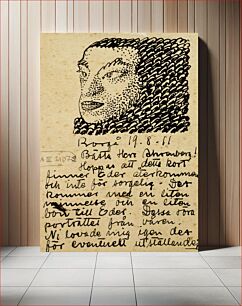 Borgå 19.8.61
Bästa Herr Ahrenberg!
Hoppas att detta kort
finner Eder återkommen
och inte för sorgelig. Det
kommer med en liten
och en liten
bön till Eder. Dessa
porträttet från våren.
Ni lovade mig igen det
för eventuell utställande